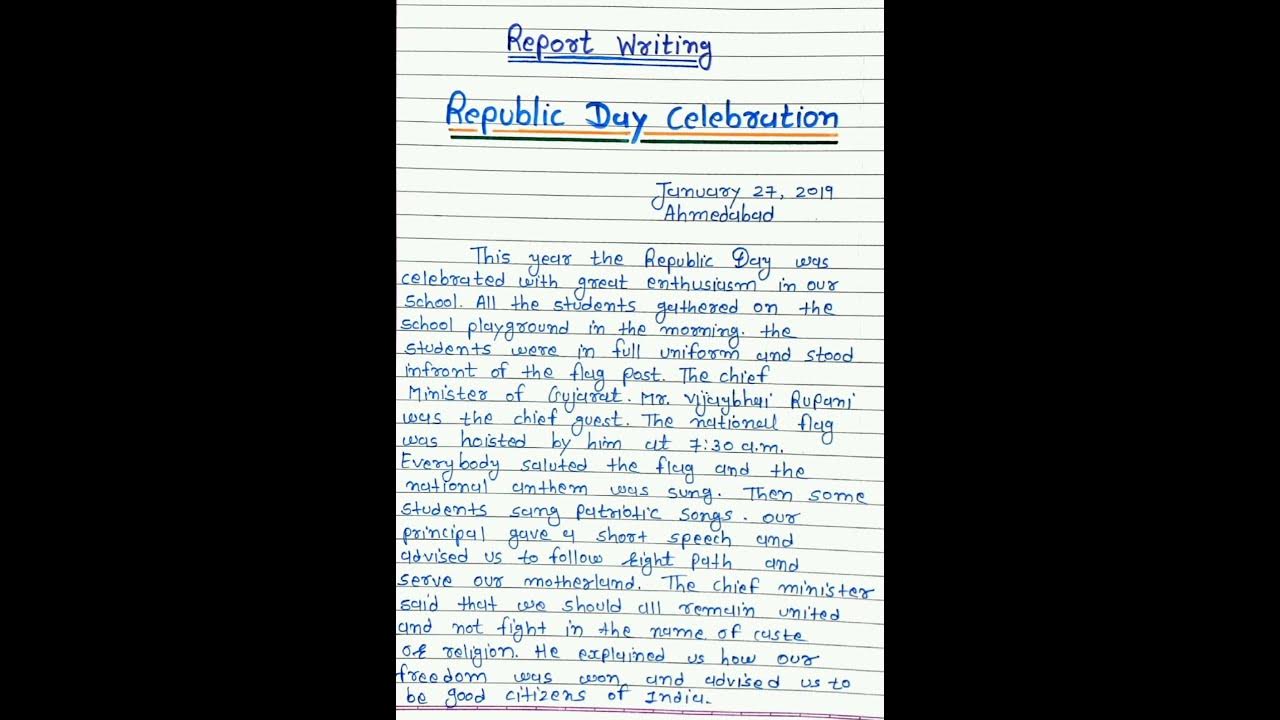 Report Writing
Republic Day Celebration
January 27, 2019
Ahmedabad
This year the Republic Day was
celebrated with great enthusiasm in our
school. All the students gathered on the
school playground in the morning. the
students were in full uniform and stood
infront of the flag post. The chief
Minister of Gujarat. Mr. Vijaybhai Rupani
was the chief guest. The national flag
was hoisted by him at 7:30 a.m.
Everybody saluted the flag and the
national anthem was sung. Then some
students sang patriotic songs. our
principal gave a short speech and
advised us to follow right path and
serve our motherland. The chief minister
said that we should all remain united
and not fight in the name of caste
or religion. He explained us how our
freedom was won and advised us to
be good citizens of India.